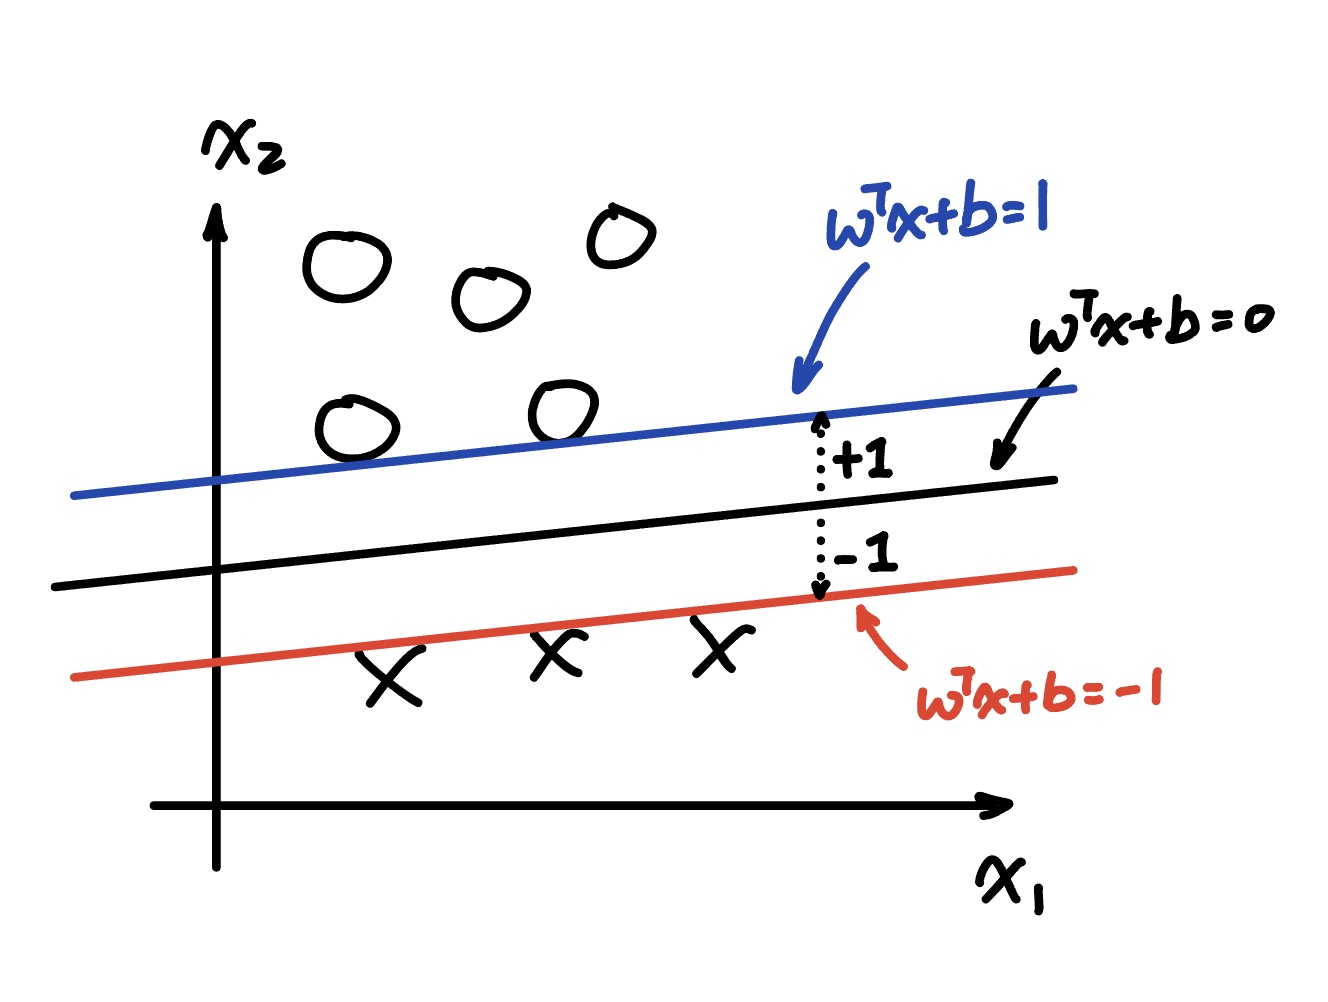 x₂
wᵀx+b=1
wᵀx+b=0
+1
-1
wᵀx+b=-1
x₁